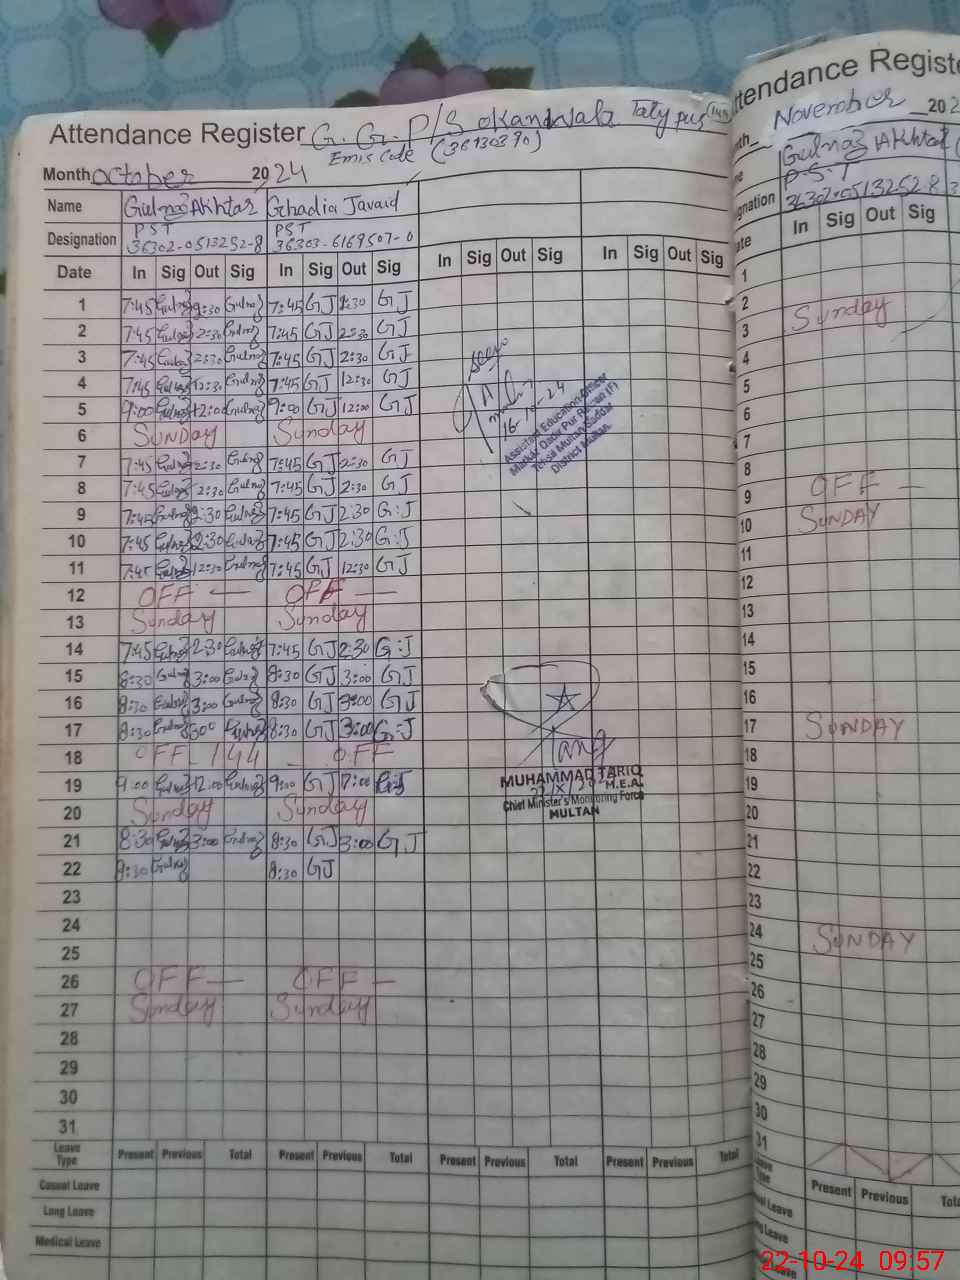 Attendance Register G.G.P/S
Emis Code (36130390)
Month October 2024
Name Gulnaz Akhtar Ghadia Javaid
PST PST
Designation 36302-0513252-8 36303-6169507-0
Date In Sig Out Sig In Sig Out Sig In Sig Out Sig In Sig Out Sig
1 7:45 Gulnaz 2:30 Gulnaz 7:45 GJ 2:30 GJ
2 7:45 Gulnaz 2:30 Gulnaz 7:45 GJ 2:30 GJ
3 7:45 Gulnaz 2:30 Gulnaz 7:45 GJ 2:30 GJ
4 7:45 Gulnaz 12:30 Gulnaz 7:45 GJ 12:30 GJ
5 9:00 Gulnaz 12:00 Gulnaz 9:00 GJ 12:00 GJ
6 SUNDAY Sunday
7 7:45 Gulnaz 2:30 Gulnaz 7:45 GJ 2:30 GJ
8 7:45 Gulnaz 2:30 Gulnaz 7:45 GJ 2:30 GJ
9 7:45 Gulnaz 2:30 Gulnaz 7:45 GJ 2:30 G:J
10 7:45 Gulnaz 2:30 Gulnaz 7:45 GJ 2:30 G:J
11 7:45 Gulnaz 12:30 Gulnaz 7:45 GJ 12:30 GJ
12 OFF — OFF —
13 Sunday Sunday
14 7:45 Gulnaz 2:30 Gulnaz 7:45 GJ 2:30 G:J
15 8:30 Gulnaz 3:00 Gulnaz 8:30 GJ 3:00 GJ
16 8:30 Gulnaz 3:00 Gulnaz 8:30 GJ 3:00 GJ
17 8:30 Gulnaz 300 Gulnaz 8:30 GJ 3:00 G:J
18 OFF 144 OFF
19 9:00 Gulnaz 12:00 Gulnaz 9:00 GJ GJ
20 Sunday Sunday
21 8:30 Gulnaz 3:00 Gulnaz 8:30 GJ 3:00 G.J
22 8:30 Gulnaz 8:30 GJ
23
24
25
26 OFF — OFF —
27 Sunday Sunday
28
29
30
31
Leave Type Present Previous Total Present Previous Total Present Previous Total Present Previous Total
Casual Leave
Long Leave
Medical Leave
seen
16-10-24
Assistant Education Officer
Markaz (F)
Tehsil Multan Saddar
District Multan.
Tariq
MUHAMMAD TARIQ
M.E.A.
Chief Minister's Monitoring Force
MULTAN
ttendance Registe
nth November 202
me Gulnaz Akhtar
P.S.T
ignation 36302-0513252 8
ate In Sig Out Sig
1
2
3 Sunday
4
5
6
7
8
9 OFF —
10 SUNDAY
11
12
13
14
15
16
17 SUNDAY
18
19
20
21
22
23
24 SUNDAY
25
26
27
28
29
30
31
eave
Type Present Previous Tota
ual Leave
ng Leave
Leave
22-10-24 09:57